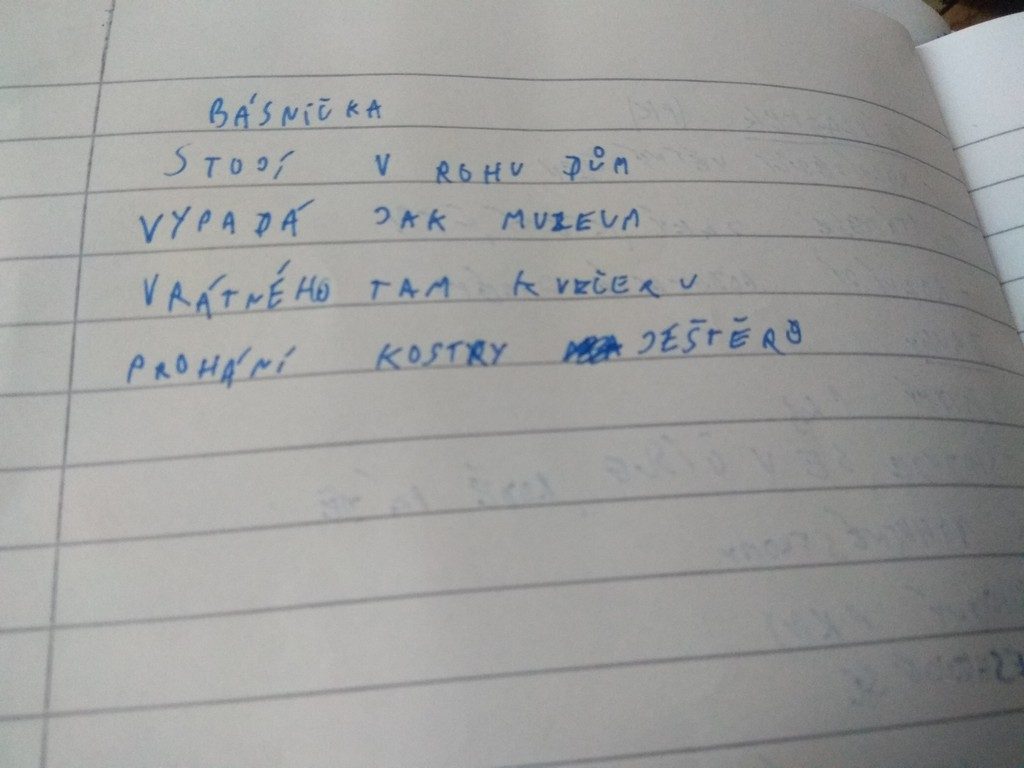 BÁSNIČKA
STOJÍ V ROHU DŮM
VYPADÁ JAK MUZEUM
VRÁTNÉHO TAM K VEČERU
PROHÁNÍ KOSTRY JEŠTĚRŮ